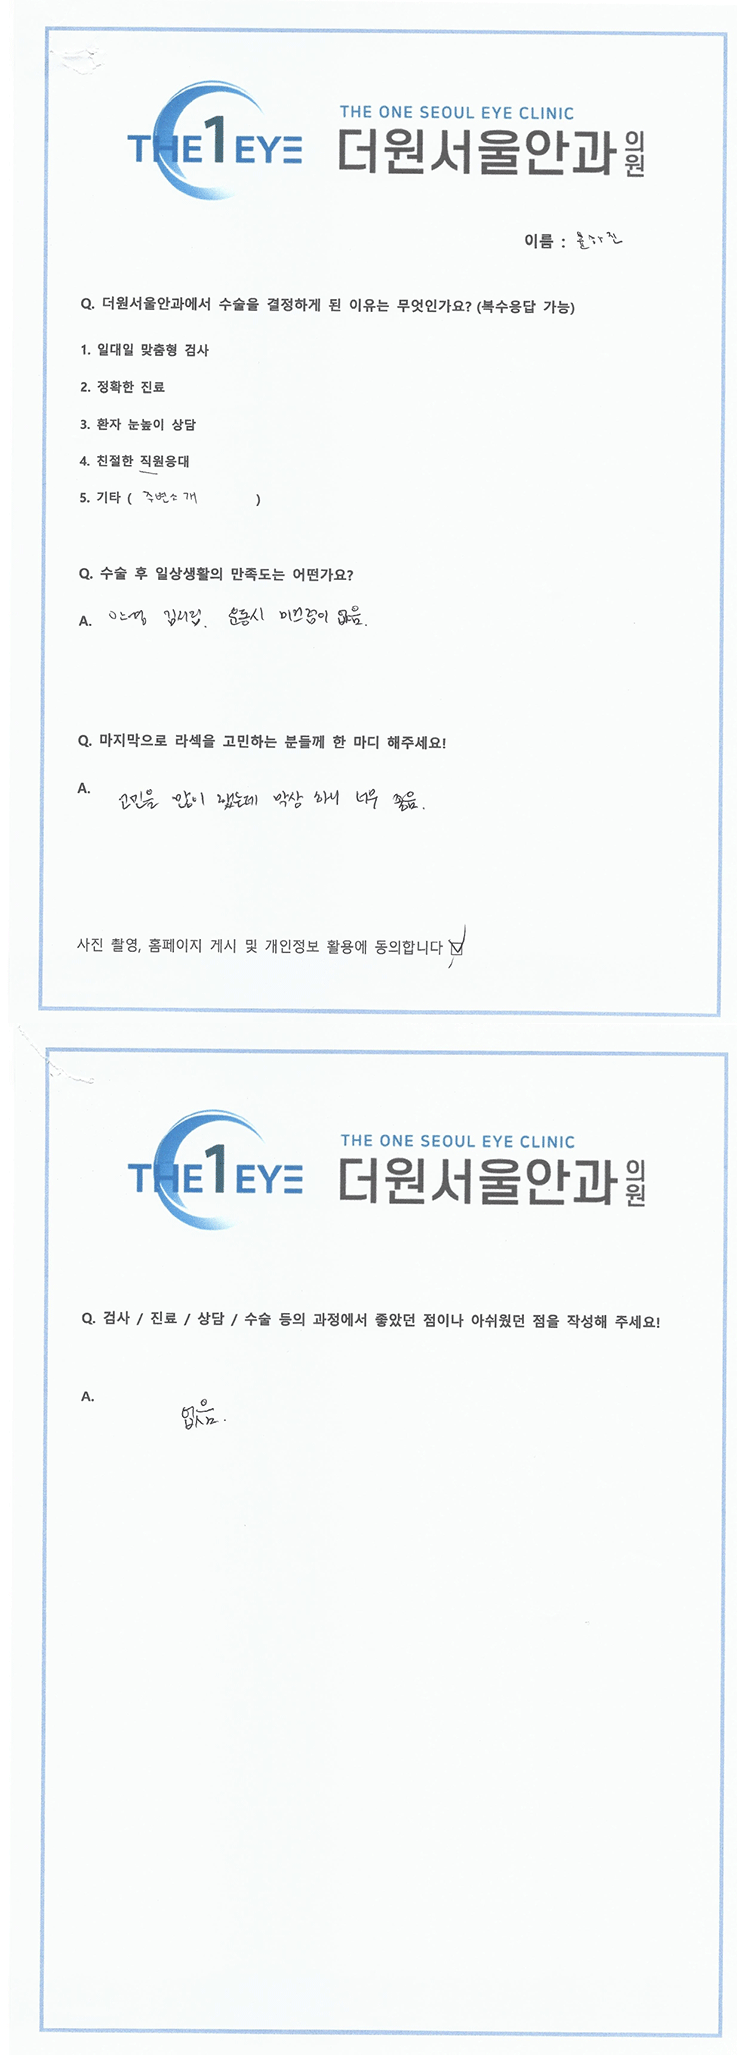 THE 1 EYE
THE ONE SEOUL EYE CLINIC
더원서울안과의원
이름 :
Q. 더원서울안과에서 수술을 결정하게 된 이유는 무엇인가요? (복수응답 가능)
1. 일대일 맞춤형 검사
2. 정확한 진료
3. 환자 눈높이 상담
4. 친절한 직원응대
5. 기타 ( 주변소개 )
Q. 수술 후 일상생활의 만족도는 어떤가요?
A. 안경 김서림. 운동시 미끄럼이 없음.
Q. 마지막으로 라섹을 고민하는 분들께 한 마디 해주세요!
A. 고민을 많이 했는데 막상 하니 너무 좋음.
사진 촬영, 홈페이지 게시 및 개인정보 활용에 동의합니다
THE 1 EYE
THE ONE SEOUL EYE CLINIC
더원서울안과의원
Q. 검사 / 진료 / 상담 / 수술 등의 과정에서 좋았던 점이나 아쉬웠던 점을 작성해 주세요!
A. 없음.